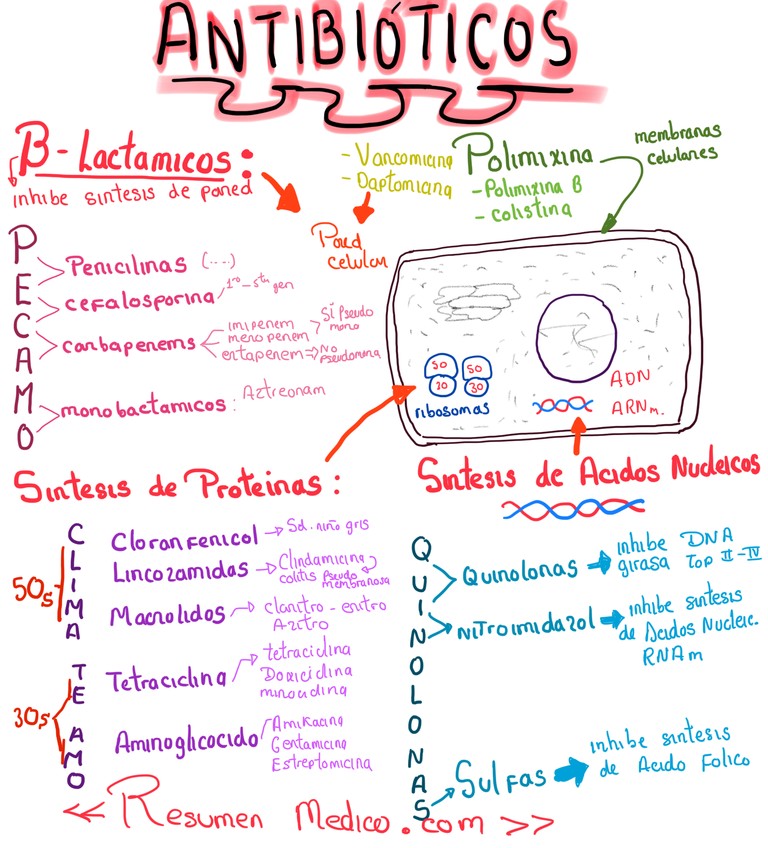 ANTIBIÓTICOS
B-Lactamicos:
inhibe sintesis de pared
- Vancomicina
- Daptomicina
Polimixina
- Polimixina B
- colistina
membranas
celulares
Pared
celular
PECAMO
Penicilinas (....)
cefalosporina 1º-5ta gen
carbapenems
imipenem
meropenem
SÍ Pseudo
mona
ertapenem => NO
pseudomona
monobactamicos: Aztreonam
50 50
30 30
ribosomas
ADN
ARNm.
Sintesis de Proteinas:
Sintesis de Acidos Nucleicos
50s
CLIMA
Cloranfenicol → Sd. niño gris
Lincozamidas → Clindamicina
colitis Pseudo
membranosa
Macrolidos → claritro - eritro
Azitro
30s
TE AMO
Tetraciclina
tetraciclina
Doxiciclina
minociclina
Aminoglicocido
Amikacina
Gentamicina
Estreptomicina
QUINOLONAS
Quinolonas → inhibe DNA
girasa Top II-IV
NitroimidazoL → inhibe sintesis
de Acidos Nucleic.
RNAm
Sulfas → inhibe sintesis
de Acido Folico
<< Resumen Medico.com >>